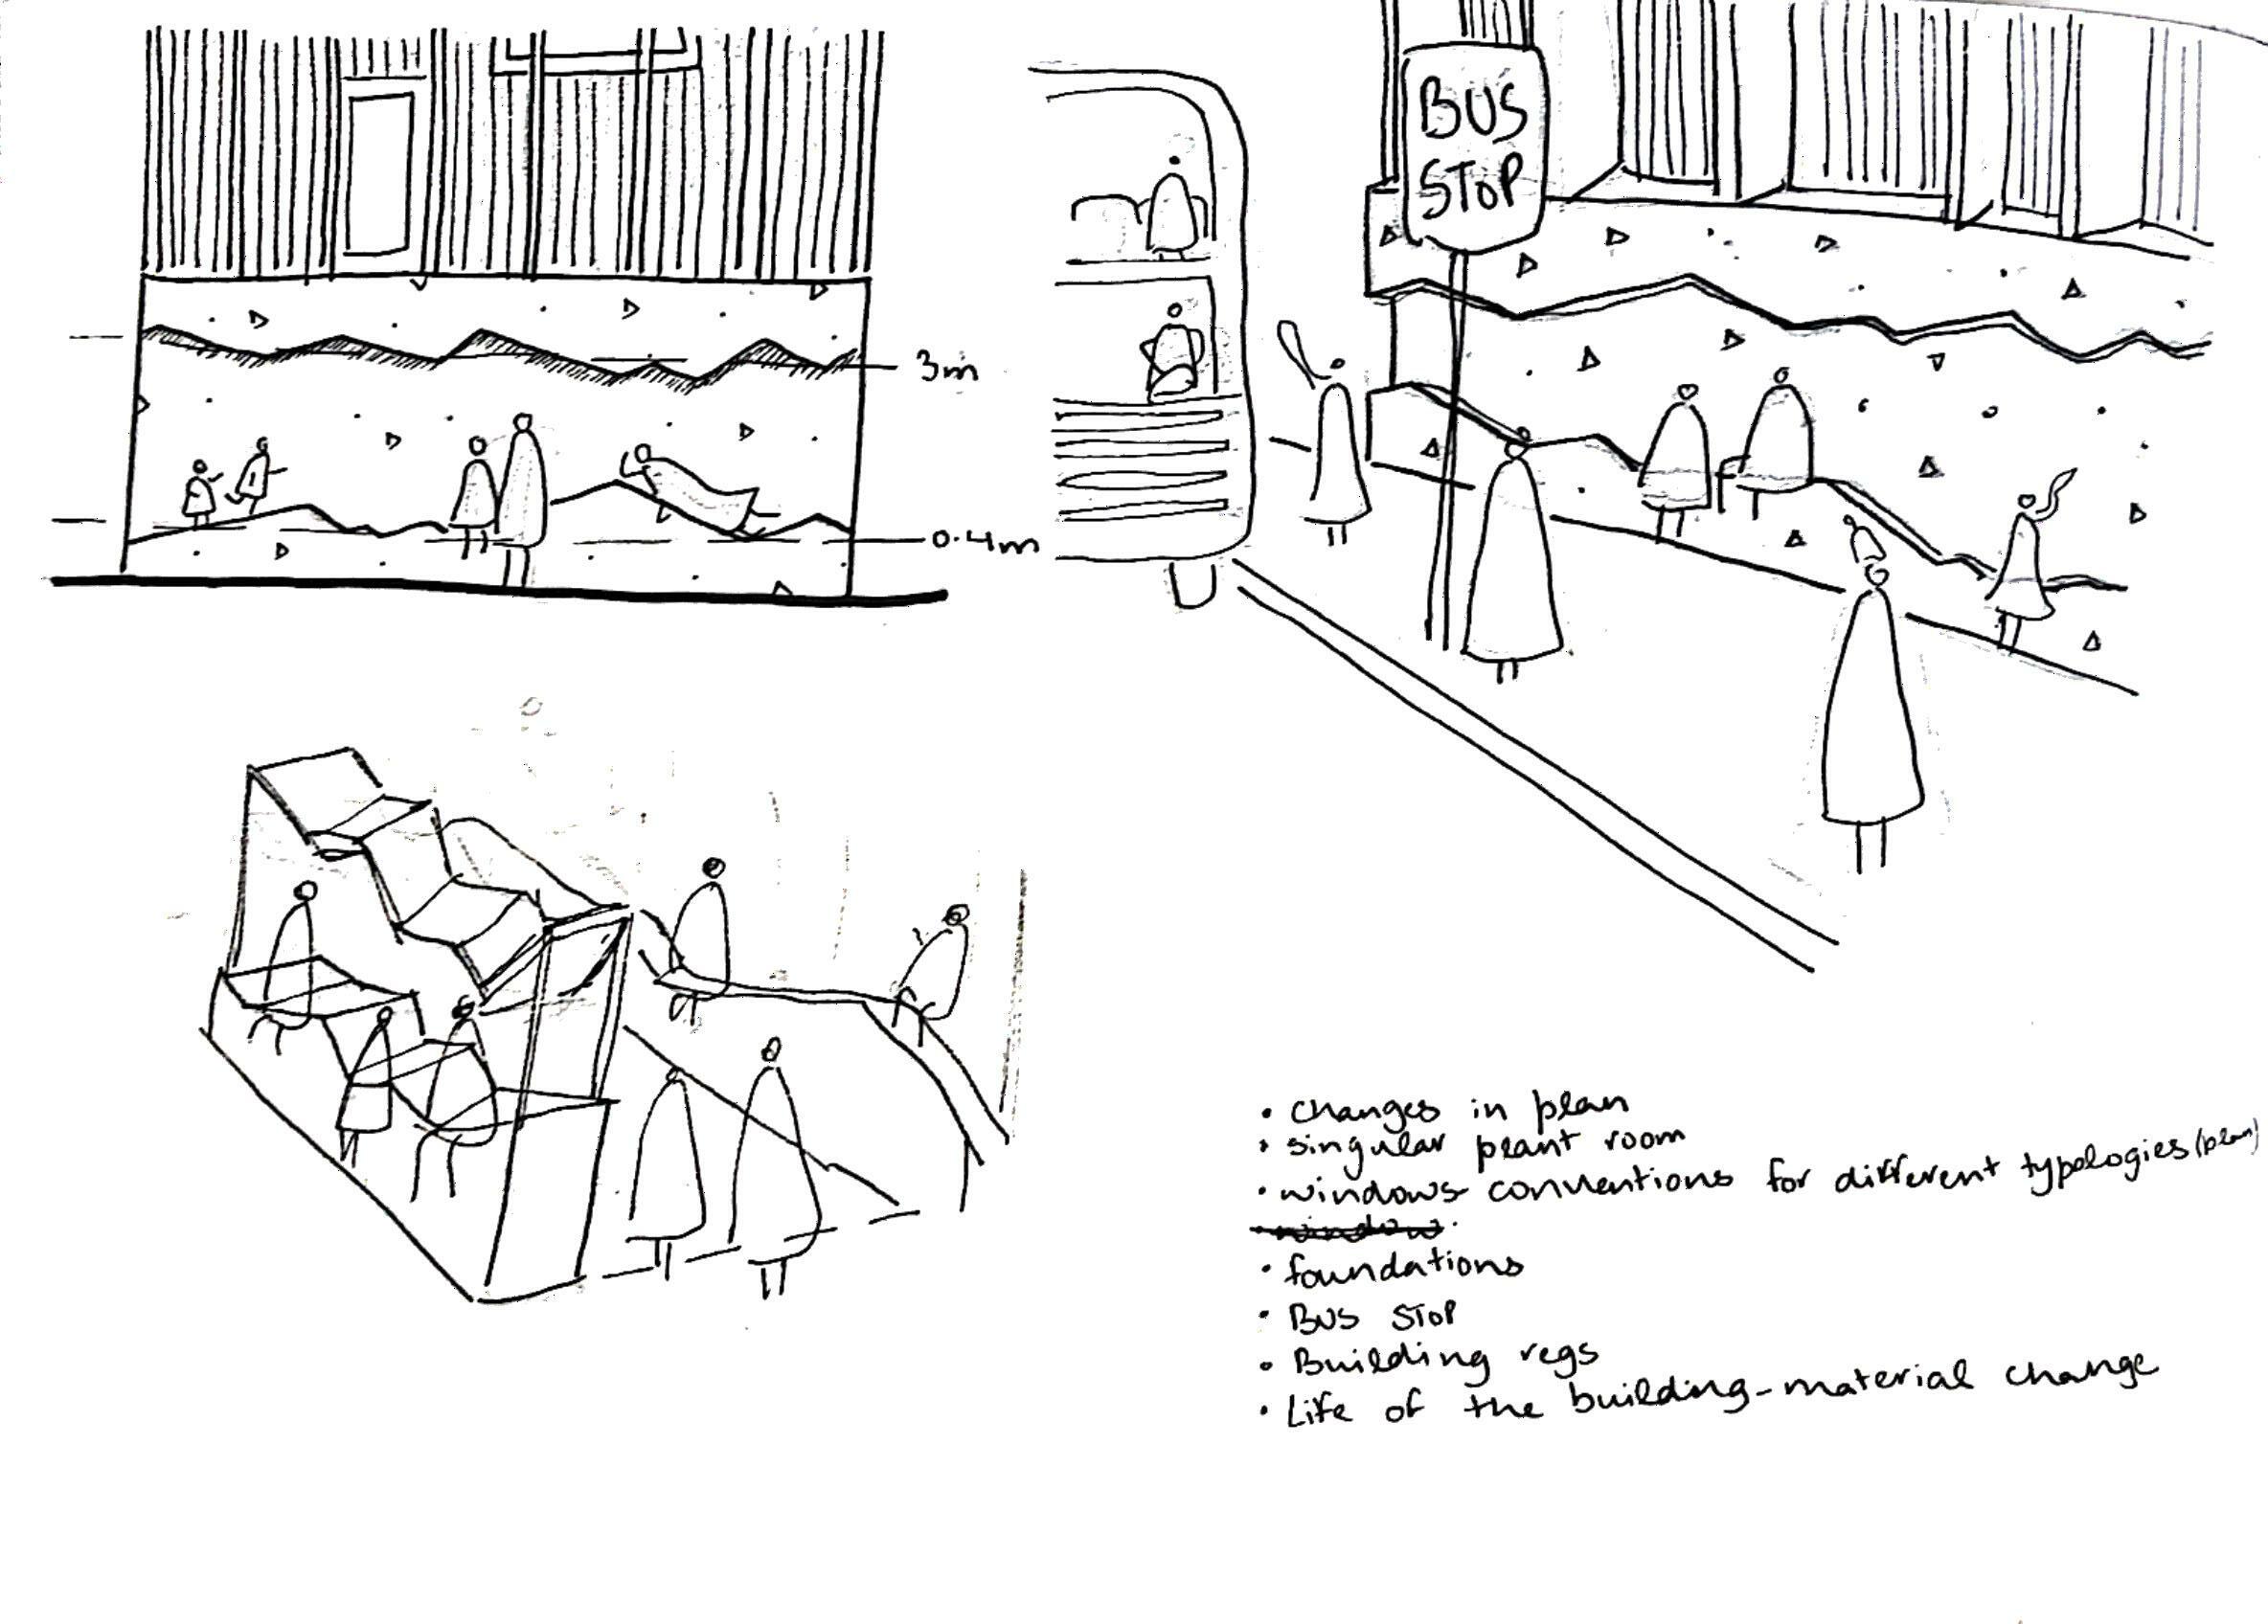 BUS
STOP
3m
0.4m
• changes in plan
• singular plant room
• windows conventions for different typologies (plan)
• window
• foundations
• BUS STOP
• Building regs
• Life of the building - material change